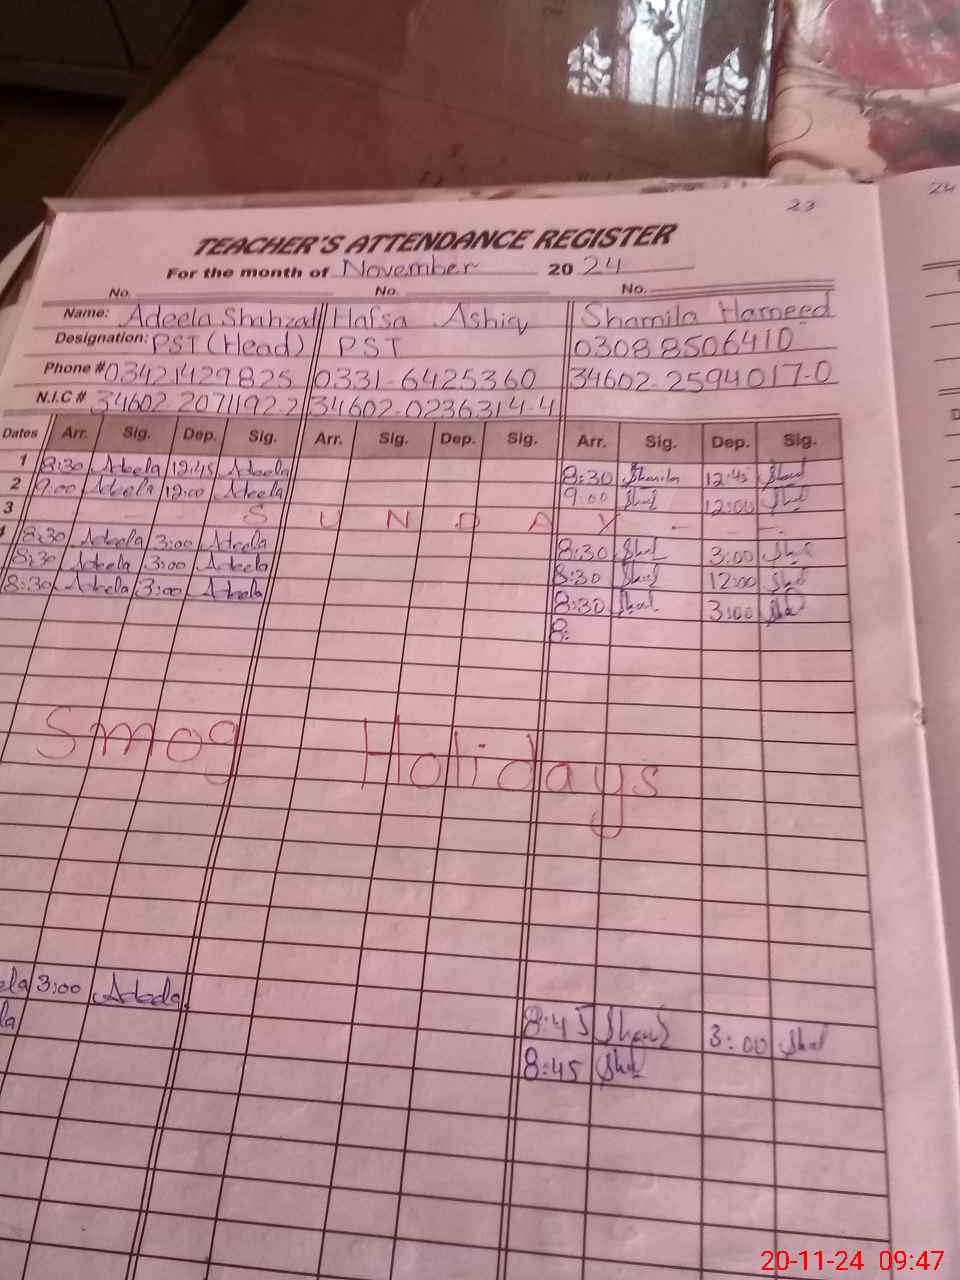 23
24
TEACHER'S ATTENDANCE REGISTER
For the month of November 20 24
No. No. No.
Name: Adeela Shahzad Hafsa Ashiq Shamila Hameed
Designation: PST (Head) PST 03088506410
Phone # 03421429825 0331-6425360 34602-2594017-0
N.I.C # 34602 2071192-2 34602-0236314-4
Dates Arr. Sig. Dep. Sig. Arr. Sig. Dep. Sig. Arr. Sig. Dep. Sig.
1 8:30 Adeela 12:45 Adeela 8:30 Shamila 12:45
2 9:00 Adeela 12:00 Adeela 9:00 12:00
3 - - S U N D A Y - -
8:30 Adeela 3:00 Adeela 8:30 3:00
8:30 Adeela 3:00 Adeela 8:30 12:00
8:30 Adeela 3:00 Adeela 8:30 3:00
8:
Smog Holidays
ela 3:00 Adeela 8:45 3:00
la 8:45
20-11-24 09:47